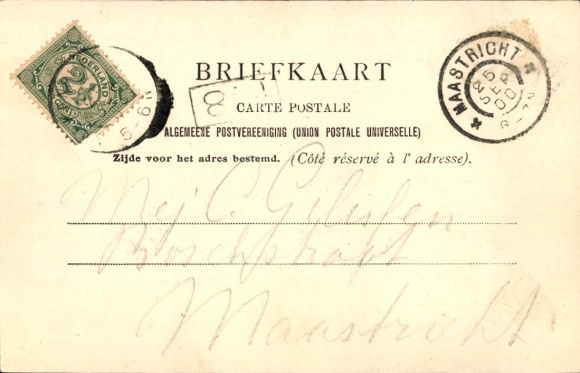 NEDERLAND
2½
CENT
5-6N
8
BRIEFKAART
CARTE POSTALE
ALGEMEENE POSTVEREENIGING (UNION POSTALE UNIVERSELLE)
Zijde voor het adres bestemd. (Côté réservé à l'adresse).
MAASTRICHT
25
SEP
Mej C.
Boschstraat
Maastricht